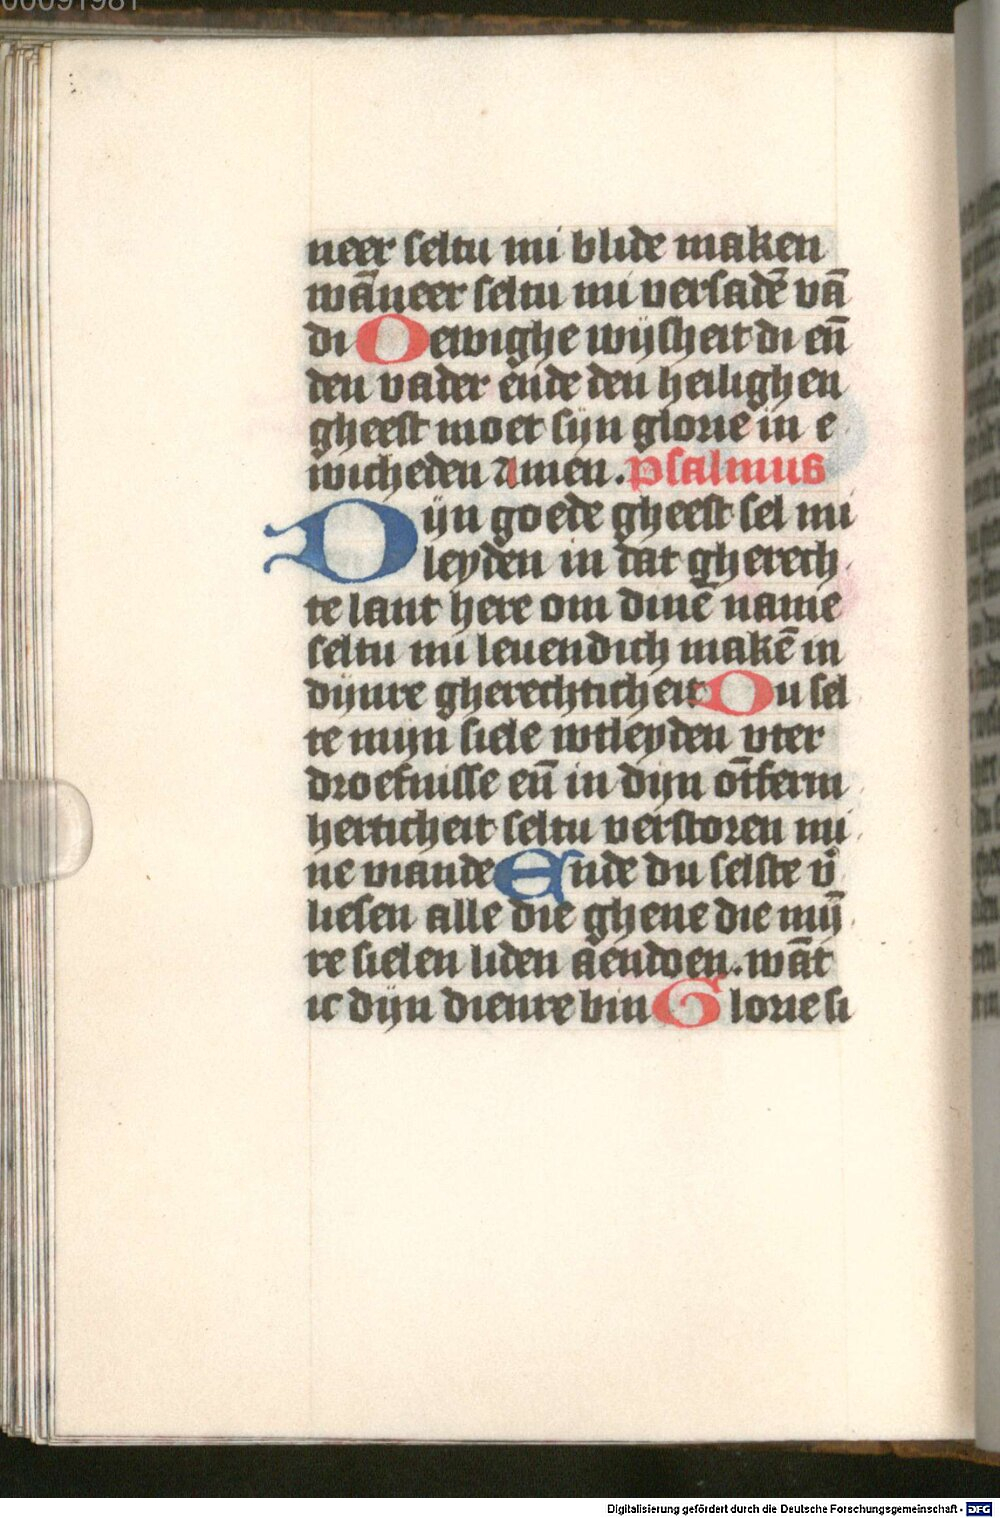 00091981
neer seltu mi blide maken
wāneer seltu mi versadē vā
di O ewighe wijsheit di eñ
den vader ende den heilighen
gheest moet sijn glorie in e
wicheden Amen. psalmus
Dijn goede gheest sel mi
leyden in dat gherech
te lant here om dinē name
seltu mi leuendich makē in
dijnre gherechticheit Du sel
te mijn siele wtleyden vter
droefnisse eñ in dijn ōtferm
herticheit seltu verstoren mi
ne viande Ende du selste v̄
liesen alle die ghene die mij̄
re sielen liden aendoen. wāt
ic dijn dienre bin Glorie si
Digitalisierung gefördert durch die Deutsche Forschungsgemeinschaft - DFG